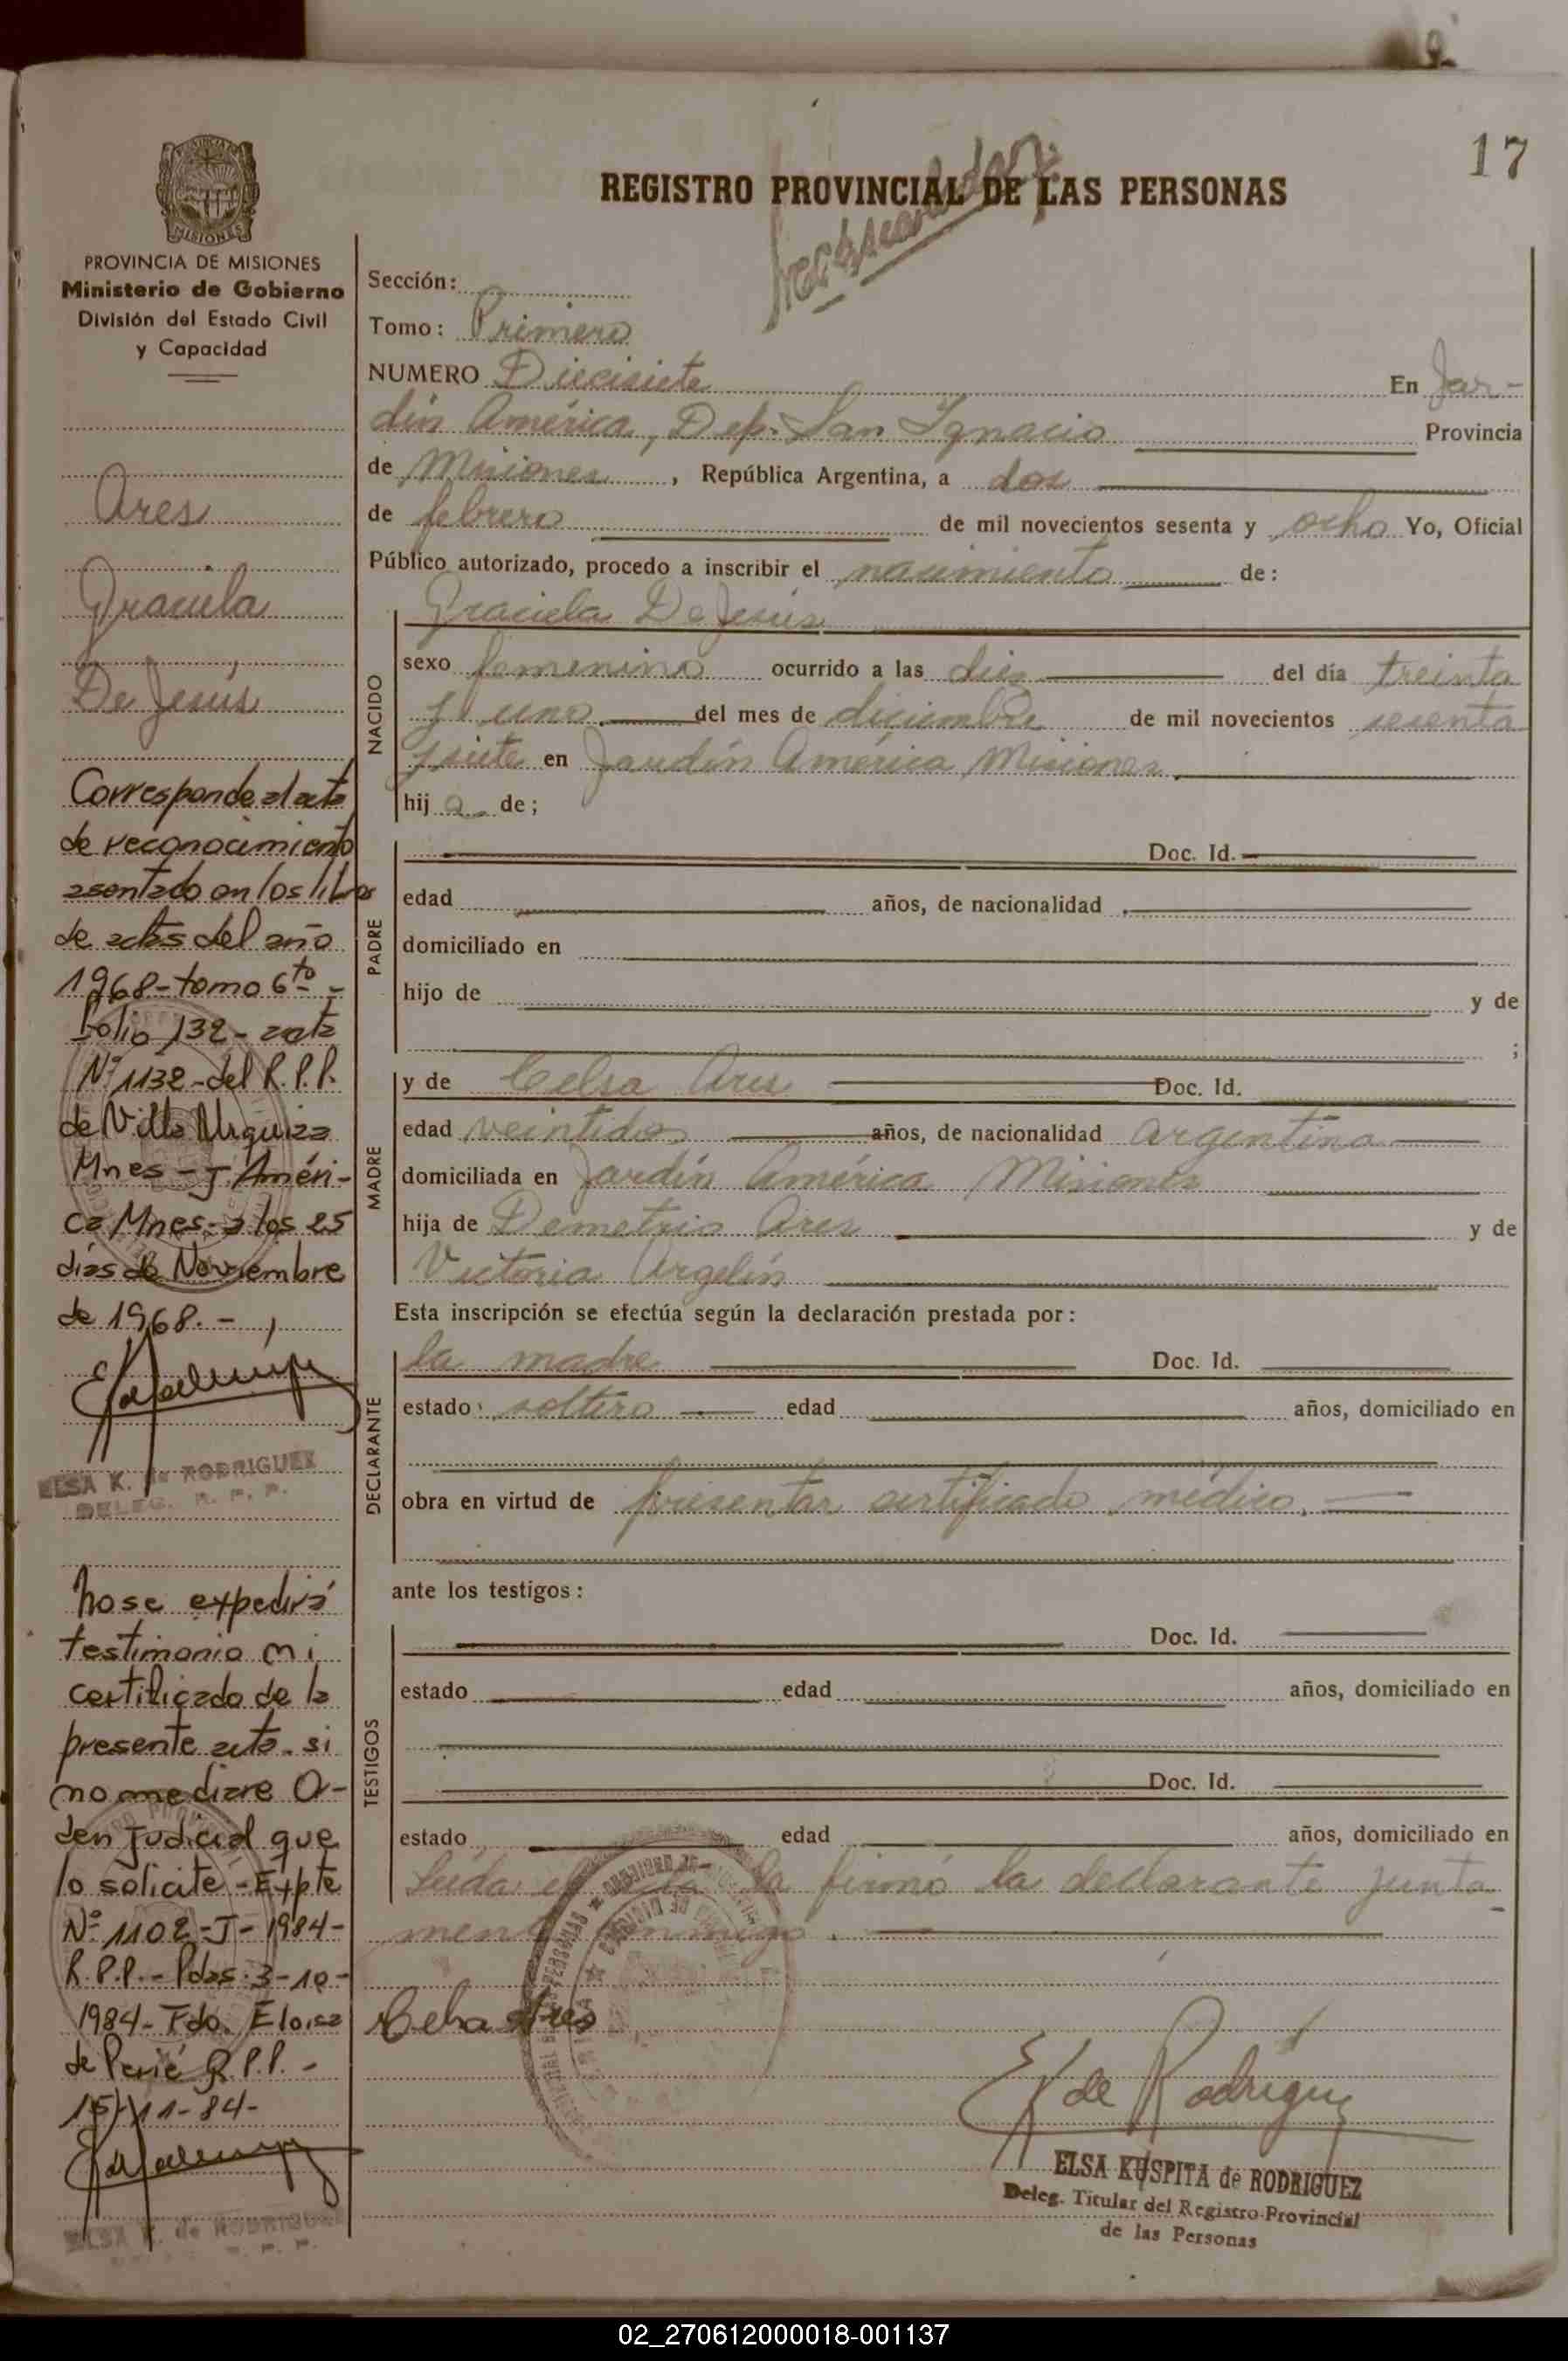 17
REGISTRO PROVINCIAL DE LAS PERSONAS
PROVINCIA DE MISIONES
Ministerio de Gobierno
División del Estado Civil
y Capacidad
Ares
Graciela
De Jesús
Corresponde al acta
de reconocimiento
asentado en los libros
de actas del año
1968-tomo 6to -
folio 132- acta
Nº 1132-del R.P.P.
de Villa Urquiza
Mnes - J. Améri-
ca Mnes- a los 25
días de Noviembre
de 1968.-
ELSA K. de RODRIGUEZ
DELEG. R. P. P.
No se expedirá
testimonio ni
certificado de la
presente acta. si
no mediare O-
den Judicial que
lo solicite - Expte
Nº 1102-J-1984-
R.P.P.- Pdas. 3-10-
1984- Fdo. Eloisa
de R.P.P. -
15-11-84-
ELSA K. de RODRIGUEZ
Sección:
Tomo: Primero
NUMERO Diecisiete En Jar-
dín América, Dep. San Ignacio Provincia
de Misiones, República Argentina, a dos
de febrero de mil novecientos sesenta y ocho Yo, Oficial
Público autorizado, procedo a inscribir el nacimiento de:
NACIDO
Graciela De Jesús
sexo femenino ocurrido a las diez del día treinta
y uno del mes de diciembre de mil novecientos sesenta
y siete en Jardín América Misiones
hij a de;
PADRE
Doc. Id.
edad años, de nacionalidad
domiciliado en
hijo de y de
;
MADRE
y de Celsa Ares Doc. Id.
edad veintidos años, de nacionalidad argentina
domiciliada en Jardín América Misiones
hija de Demetrio Ares y de
Victoria Argelín
Esta inscripción se efectúa según la declaración prestada por:
DECLARANTE
la madre Doc. Id.
estado soltera edad años, domiciliado en
obra en virtud de presentar certificado médico.
ante los testigos:
TESTIGOS
Doc. Id.
estado edad años, domiciliado en
Doc. Id.
estado edad años, domiciliado en
Leída el acta la firmó la declarante junta
mente conmigo.
Celsa Ares
E K de Rodriguez
ELSA KUSPITA de RODRIGUEZ
Deleg. Titular del Registro Provincial
de las Personas
02_270612000018-001137